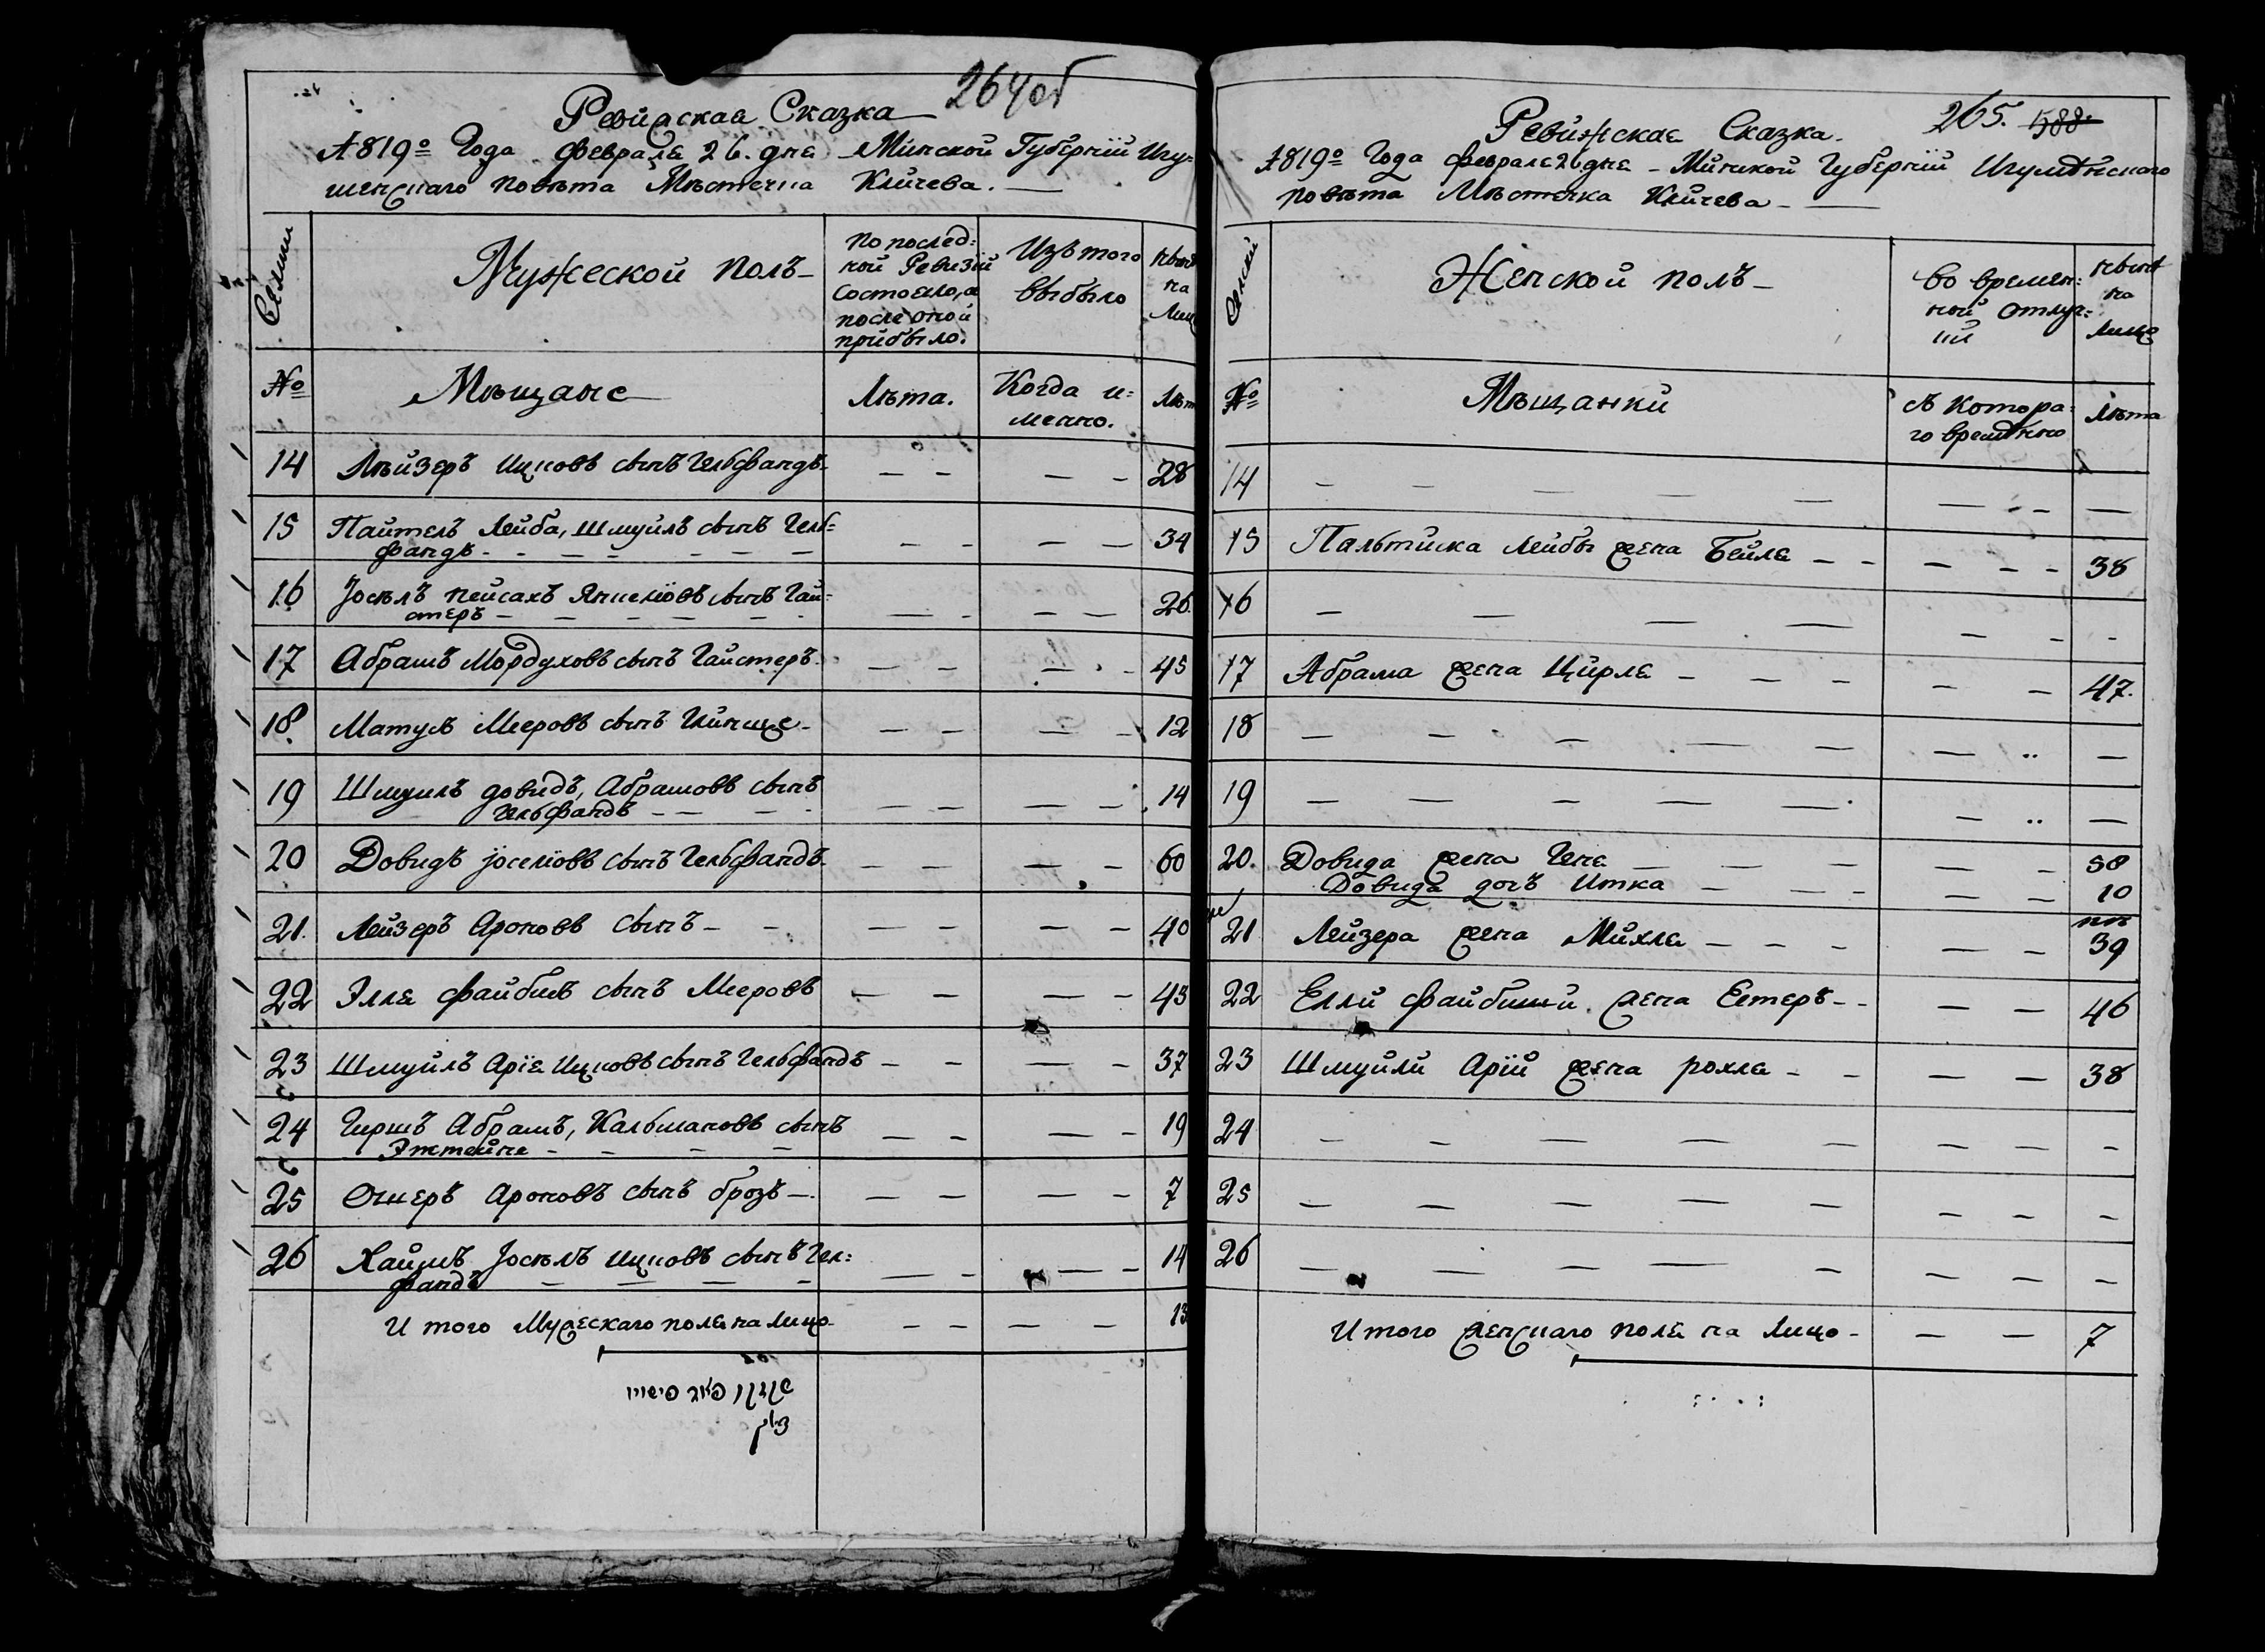 264об
Ревизская Сказка
1819º Года февраля 26. дня Минской Губерніи Игу=
менскаго повѣта Мѣстечка Кличева.
Семьи
Мужеской полъ
По послед=
ной Ревизіи
Состояло, а
после оной
прибыло.
Изъ того
выбыло
нынѣ
на
Лицо
№
Мѣщане
Лѣта.
Когда и=
менно.
Лѣта
14 Лѣйзеръ Ицковъ сынъ Гельфандъ 28
15 Лейба, Шмуилъ сынъ Гель=
фандъ 34
16 Іосѣлъ Пейсахъ Янкеліовъ сынъ Гай=
стеръ 26
17 Абрамъ Мордуховъ сынъ Гайстеръ 45
18 Матусъ Мееровъ сынъ 12
19 Шмуилъ довидъ, Абрамовъ сынъ
Гельфандъ 14
20 Довидъ іоселіовъ сынъ Гельфандъ 60
21. Лейзеръ Ароновъ сынъ 40
22 Элля файбишъ сынъ Мееровъ 43
23 Шмуйлъ Аріа Ицковъ сынъ Гельфандъ 37
24 Гиршъ Абрамъ, Кальмановъ сынъ
19
25 Ошеръ Ароновъ сынъ брозъ 7
26 Хаимъ Іосѣлъ Ицковъ сынъ Гел=
фандъ 14
И того Мужескаго пола на лицо 13
265. 588.
Ревижская Сказка.
1819º Года февраля 26 дня Минской Губерніи Игуменскаго
повѣта Мѣстечка Кличева
Семьи
Женской полъ
Во времен=
ной отлуч=
ки
нынѣ
на
лицо
№
Мѣщанки
съ котора=
го времѣнно
Лѣта
14
15 Лейбы жена Бейля 38
16
17 Абрама жена Цирля 47.
18
19
20. Довида жена Геня 58
Довида дочь Итка 10
21 Лейзера жена Михля 39
22 Елли файбиши жена Естеръ 46
23 Шмуйли Аріи жена рохля 38
24
25
26
Итого женскаго пола на лицо 7